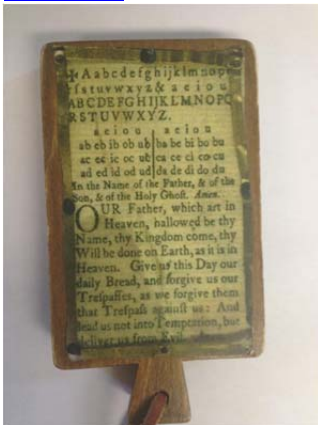 ✠ A a b c d e f g h i j k l m n o p q
r ſ s t u v w x y z & a e i o u
A B C D E F G H I J K L M N O P Q
R S T U V W X Y Z.
a e i o u | a e i o u
ab eb ib ob ub | ba be bi bo bu
ac ec ic oc uc | ca ce ci co cu
ad ed id od ud | da de di do du
In the Name of the Father, & of the
Son, & of the Holy Ghoſt. Amen.
OUR Father, which art in
Heaven, hallowed be thy
Name, thy Kingdom come, thy
Will be done on Earth, as it is in
Heaven. Give us this Day our
daily Bread, and forgive us our
Treſpaſſes, as we forgive them
that Treſpaſs againſt us: And
lead us not into Temptation, but
deliver us from Evil.